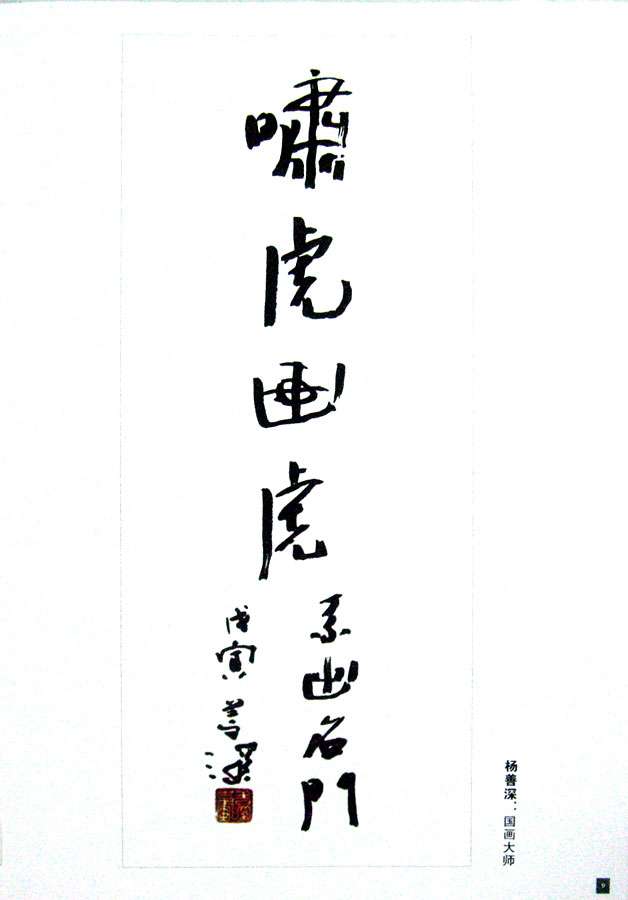 嘯虎画虎
系出名門
戊寅善深
杨善深：国画大师
9